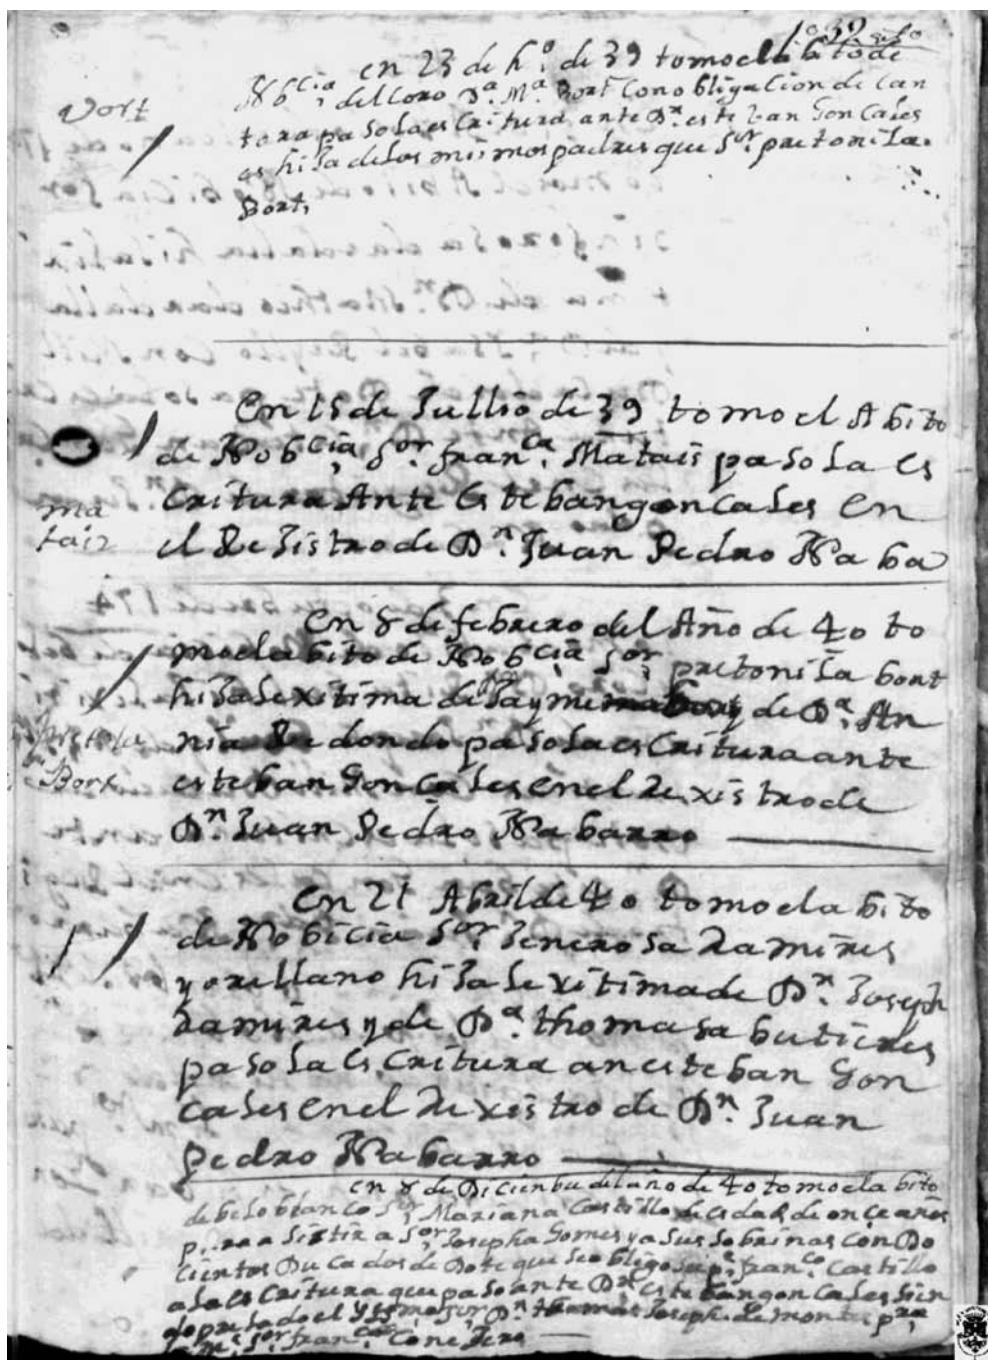 39
en 23 de h.º de 39 tomo el abito de
Nobcia, del coro Dª. Mª. Bort Con obligacion de can
tora paso la escritura ante Dn. esteban Goncales
es hisa de los mismos padres que Sor. pretonila.
Bort,
Vort
En 15 de Jullio de 39 tomo el Abito
de Nobcia, Sor. franca. Matais paso la es
critura Ante Esteban goncales En
el Rejistro de Dn. Juan Pedro Naba
ma
tais
En 8 de febrero del Año de 40 to
mo el abito de Nobcia Sor, pretonila bort
hisa lexitima de Jayme bort y de Dª. An
nia Redondo paso la escritura ante
esteban Goncales en el rexistro de
Dn Juan Pedro Nabarro
Bort
En 21 Abril de 40 tomo el abito
de Nobicia Sor. Jenerosa Ramires
y orellano hisa lexitima de Dn. Joseph
Ramires y de Dª. thomasa butieres
paso la escritura an esteban Gon
cales en el rexistro de Dn Juan
Pedro Nabarro
en 8 de Diciembre del año de 40 tomo el abito
de belo blanco Sor, Mariana Castillo de edad de onçe años
para asistir a Sor, Josepha Gomes y a sus sobrinas con Do
cientos Ducados de Dote que se obligo su pe. franco. Castillo
a la escritura que paso ante Dn esteban goncales sien
do prelado el Dn. thomas Joseph de montes pra,
Sor. franca